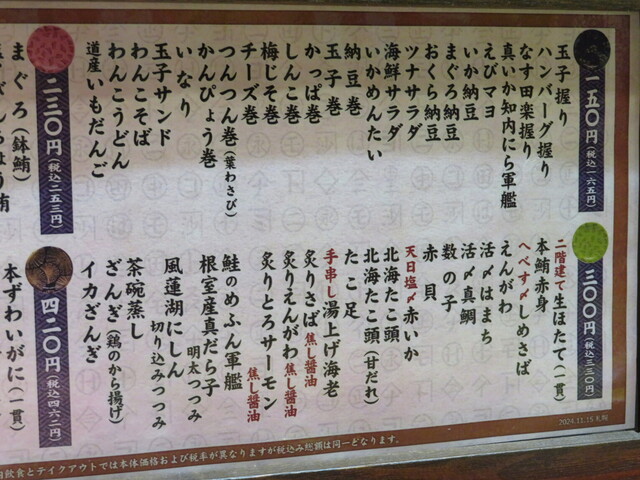 一五〇円(税込一六五円)
玉子握り
ハンバーグ握り
なす田楽握り
真いか知内にら軍艦
えびマヨ
いか納豆
まぐろ納豆
おくら納豆
ツナサラダ
海鮮サラダ
いかめんたい
納豆巻
玉子巻
かっぱ巻
しんこ巻
梅じそ巻
チーズ巻
つんつん巻(葉わさび)
かんぴょう巻
いなり
玉子サンド
わんこそば
わんこうどん
道産いもだんご
二三〇円(税込二五三円)
まぐろ(鉢鮪)
三〇〇円(税込三三〇円)
二階建て生ほたて(一貫)
本鮪赤身
へべす〆しめさば
えんがわ
活〆はまち
活〆真鯛
数の子
赤貝
天日塩〆赤いか
北海たこ頭
北海たこ頭(甘だれ)
たこ足
手串し湯上げ海老
炙りさば焦し醤油
炙りえんがわ焦し醤油
炙りとろサーモン焦し醤油
鮭のめふん軍艦
根室産真だら子明太つつみ
風蓮湖にしん切り込みつつみ
茶碗蒸し
ざんぎ(鶏のから揚げ)
イカざんぎ
四二〇円(税込四六二円)
本ずわいがに(一貫)
2024.11.15 札幌
内飲食とテイクアウトでは本体価格および税率が異なりますが税込み総額は同一となります。